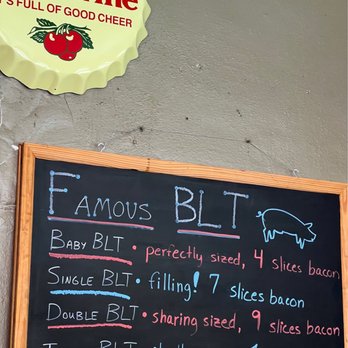 'S FULL OF GOOD CHEER
FAMOUS BLT
BABY BLT • perfectly sized, 4 slices bacon
SINGLE BLT • filling! 7 slices bacon
DOUBLE BLT • sharing sized, 9 slices bacon